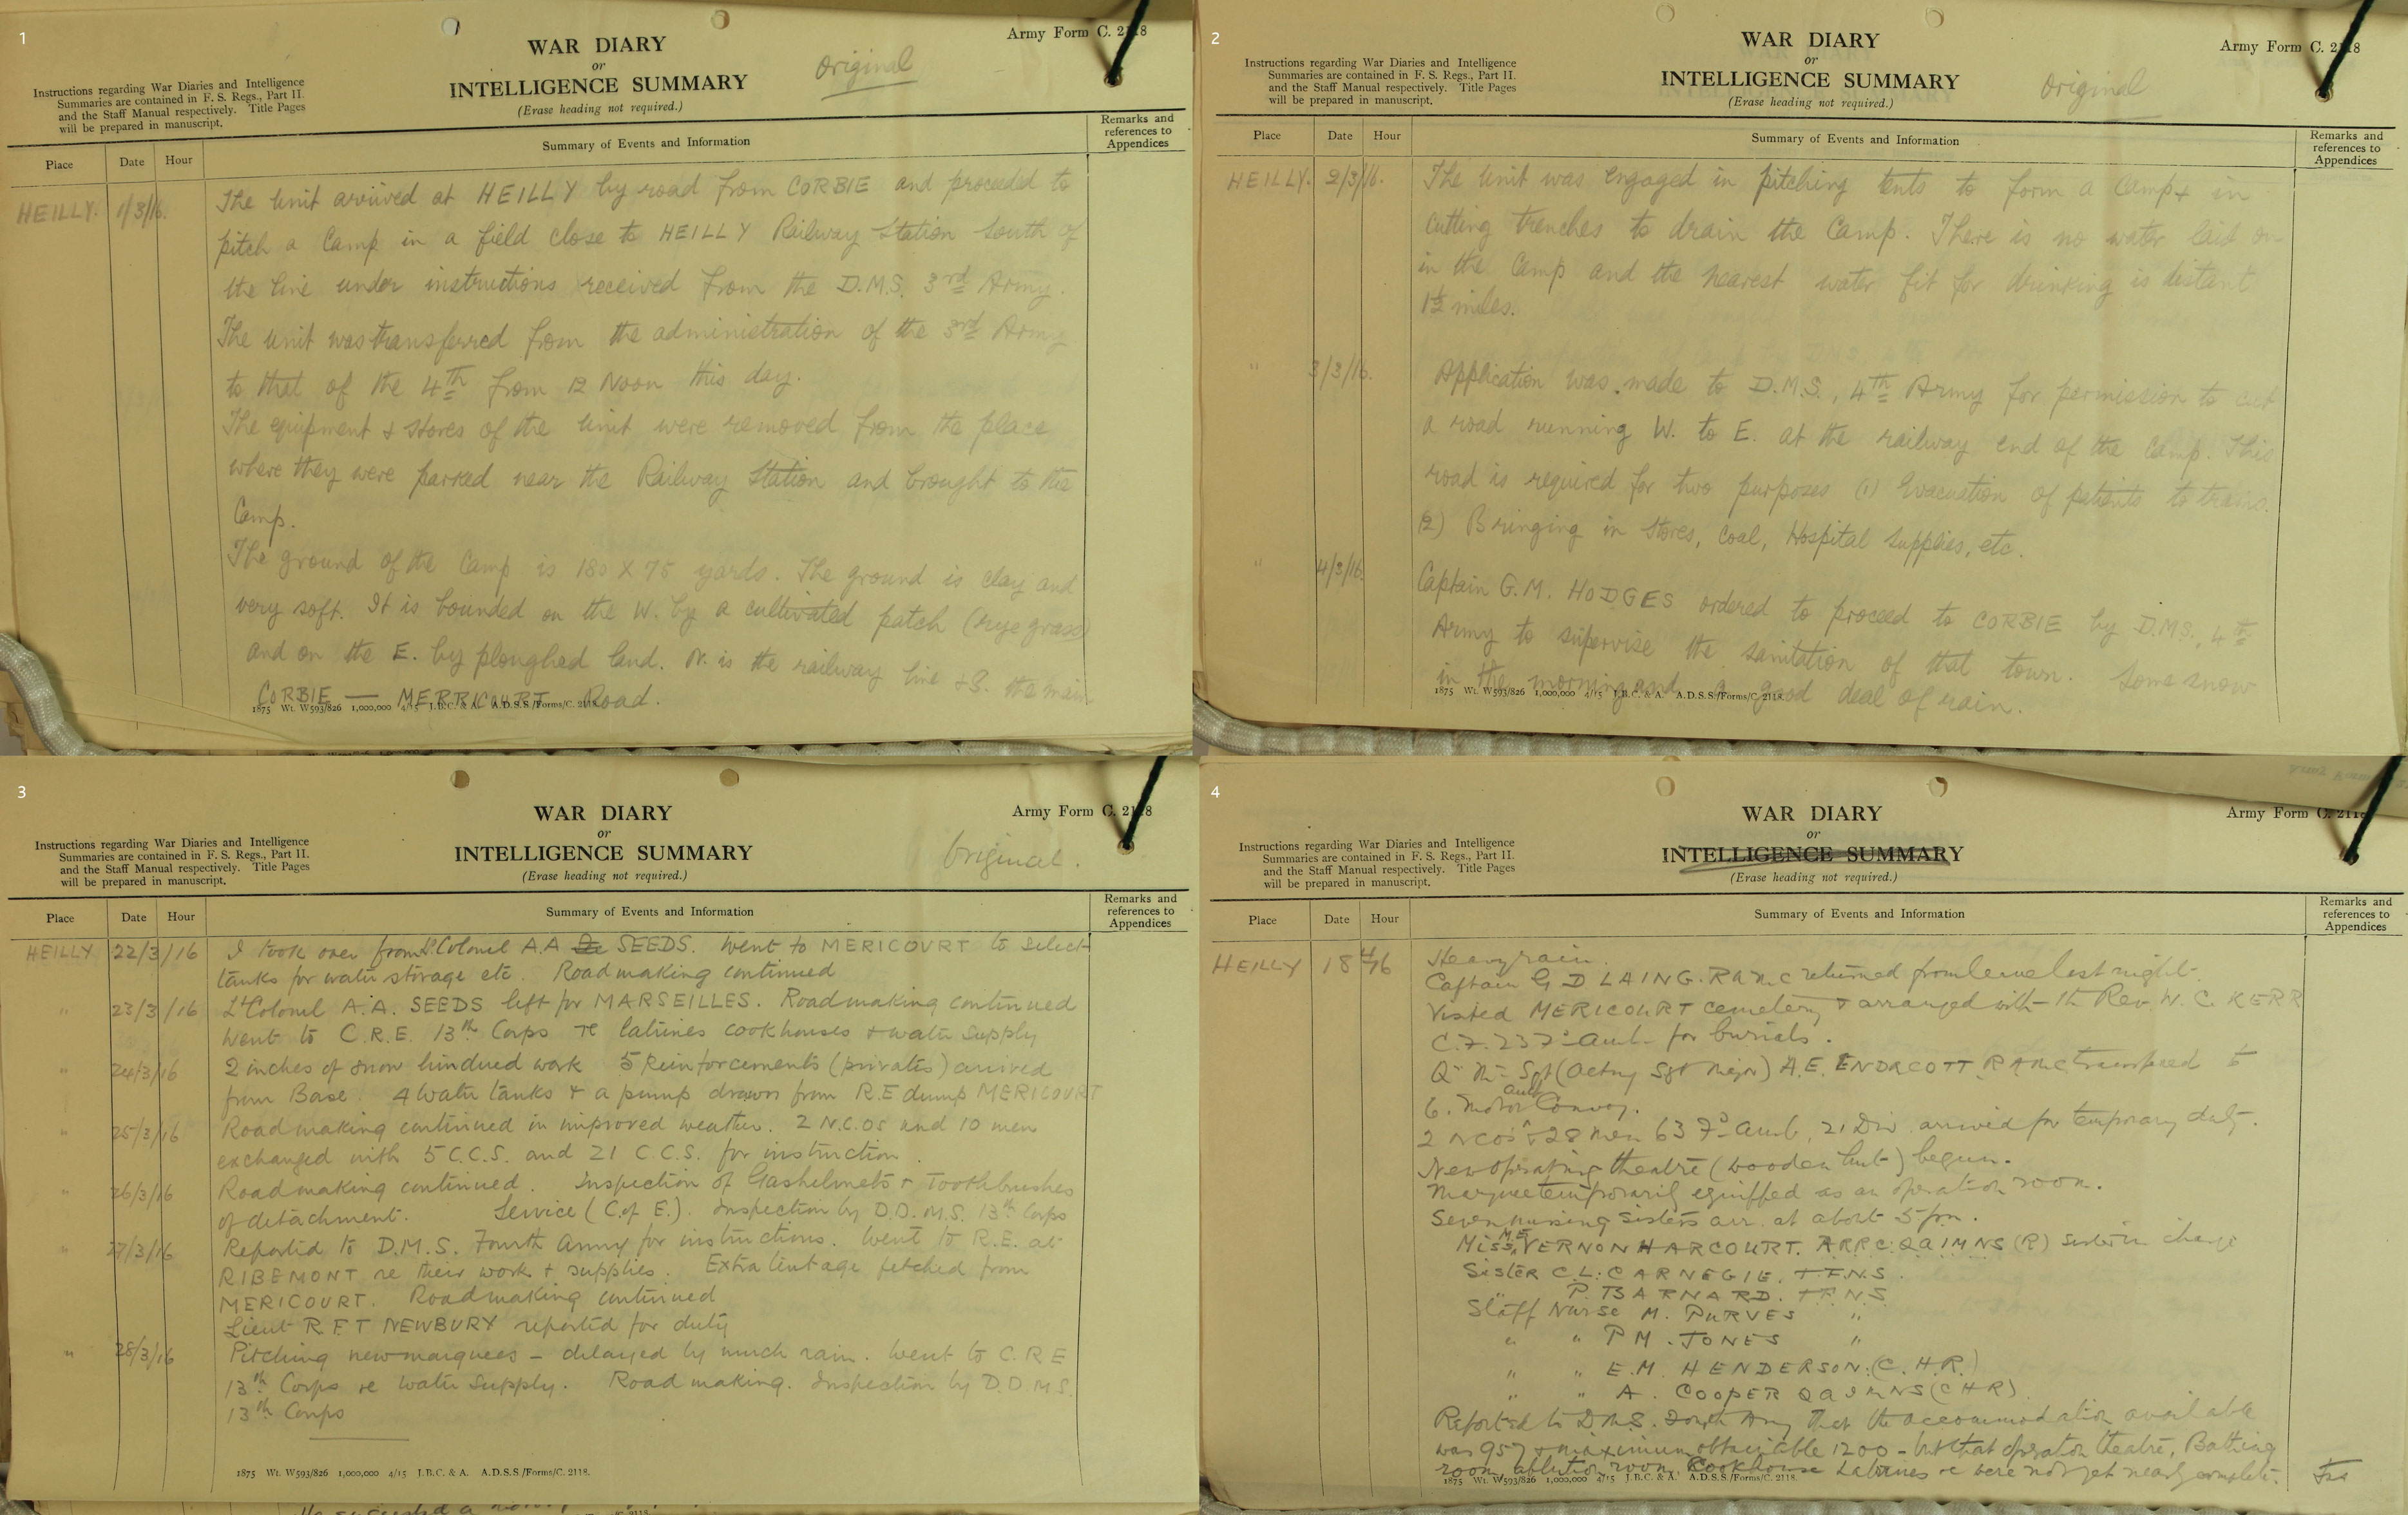 1
WAR DIARY
or
INTELLIGENCE SUMMARY
(Erase heading not required.)
Original
Army Form C. 2118
Instructions regarding War Diaries and Intelligence
Summaries are contained in F. S. Regs., Part II.
and the Staff Manual respectively. Title Pages
will be prepared in manuscript.
Place Date Hour Summary of Events and Information Remarks and references to Appendices
HEILLY. 1/3/16. The Unit arrived at HEILLY by road from CORBIE and proceeded to
pitch a Camp in a field close to HEILLY Railway Station South of
the line under instructions received from the D.M.S. 3rd Army.
The unit was transferred from the administration of the 3rd Army
to that of the 4th from 12 Noon this day.
The equipment & stores of the unit were removed from the place
where they were parked near the Railway Station and brought to the
Camp.
The ground of the Camp is 180 X 75 yards. The ground is clay and
very soft. It is bounded on the W. by a cultivated patch (rye grass)
and on the E. by ploughed land. N. is the railway line & S. the main
CORBIE — MERRICOURT Road.
1875 Wt. W593/826 1,000,000 4/15 J.B.C. & A. A.D.S.S./Forms/C. 2118.
2
WAR DIARY
or
INTELLIGENCE SUMMARY
(Erase heading not required.)
Original
Army Form C. 2118
Instructions regarding War Diaries and Intelligence
Summaries are contained in F. S. Regs., Part II.
and the Staff Manual respectively. Title Pages
will be prepared in manuscript.
Place Date Hour Summary of Events and Information Remarks and references to Appendices
HEILLY. 2/3/16. The Unit was engaged in pitching tents to form a Camp & in
cutting trenches to drain the Camp. There is no water laid on
in the Camp and the nearest water fit for drinking is distant
1½ miles.
" 3/3/16. Application was made to D.M.S., 4th Army for permission to cut
a road running W. to E. at the railway end of the Camp. This
road is required for two purposes (1) Evacuation of patients to trains.
(2) Bringing in Stores, Coal, Hospital Supplies, etc.
" 4/3/16. Captain G.M. HODGES ordered to proceed to CORBIE by D.M.S., 4th
Army to supervise the sanitation of that town. Some snow
in the morning and a good deal of rain.
1875 Wt. W593/826 1,000,000 4/15 J.B.C. & A. A.D.S.S./Forms/C. 2118.
3
WAR DIARY
or
INTELLIGENCE SUMMARY
(Erase heading not required.)
Original.
Army Form C. 2118
Instructions regarding War Diaries and Intelligence
Summaries are contained in F. S. Regs., Part II.
and the Staff Manual respectively. Title Pages
will be prepared in manuscript.
Place Date Hour Summary of Events and Information Remarks and references to Appendices
HEILLY 22/3/16 I took over from Lt Colonel A.A. SEEDS. Went to MERICOURT to select
tanks for water storage etc. Roadmaking continued
" 23/3/16 Lt Colonel A.A. SEEDS left for MARSEILLES. Roadmaking continued
Went to C.R.E. 13th Corps re latrines cookhouses & water supply
" 24/3/16 2 inches of snow hindered work 5 Reinforcements (privates) arrived
from Base. 4 water tanks & a pump drawn from R.E dump MERICOURT
" 25/3/16 Roadmaking continued in improved weather. 2 N.C.Os and 10 men
exchanged with 5 C.C.S. and 21 C.C.S. for instruction.
" 26/3/16 Roadmaking continued. Inspection of Gashelmets & Toothbrushes
of detachment. Service (C.of E.). Inspection by D.D.M.S. 13th Corps
" 27/3/16 Reported to D.M.S. Fourth Army for instructions. Went to R.E. at
RIBEMONT re their work & supplies. Extra tentage fetched from
MERICOURT. Roadmaking continued
Lieut R.F.T NEWBURY reported for duty
" 28/3/16 Pitching new marquees – delayed by much rain. Went to C.R.E
13th Corps re water supply. Road making. Inspection by D.D.M.S.
13th Corps
1875 Wt. W593/826 1,000,000 4/15 J.B.C. & A. A.D.S.S./Forms/C. 2118.
4
WAR DIARY
or
INTELLIGENCE SUMMARY
(Erase heading not required.)
Army Form C. 2118
Instructions regarding War Diaries and Intelligence
Summaries are contained in F. S. Regs., Part II.
and the Staff Manual respectively. Title Pages
will be prepared in manuscript.
Place Date Hour Summary of Events and Information Remarks and references to Appendices
HEILLY 18 4/16 Heavy rain.
Captain G D LAING. RAMC returned from leave last night.
Visited MERICOURT cemetery & arranged with the Rev. W. C. KERR
C.F. 23 Fd Amb. for burials.
Qr Mr Sgt (Acting Sgt Major) A.E. ENDACOTT RAMC transferred to
6. Motor Amb Convoy.
2 NCOs & 28 men 63 Fd Amb, 21 Div. arrived for temporary duty.
New operating theatre (wooden hut) begun.
Marquee temporarily equipped as an operation room.
Seven nursing sisters arr. at about 5 pm.
Miss M.E. VERNON HARCOURT. ARRC. QAIMNS (R) Sister in charge
Sister C.L. CARNEGIE. T.F.N.S.
" P. BARNARD. TFNS
Staff Nurse M. PURVES "
" " P M. JONES "
" " E.M. HENDERSON. (C.H.R.)
" " A. COOPER QAIMNS (CHR)
Reported to D.M.S. Fourth Army that the accommodation available
was 957 & maximum obtainable 1200 – but that operation theatre, Bathing
room, ablution room, Cookhouse Latrines &c were not yet nearly complete.
1875 Wt. W593/826 1,000,000 4/15 J.B.C. & A. A.D.S.S./Forms/C. 2118.